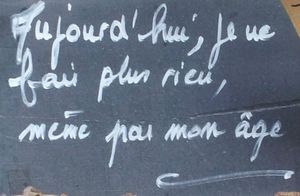 Aujourd'hui, je ne
fais plus rien,
même pas mon âge